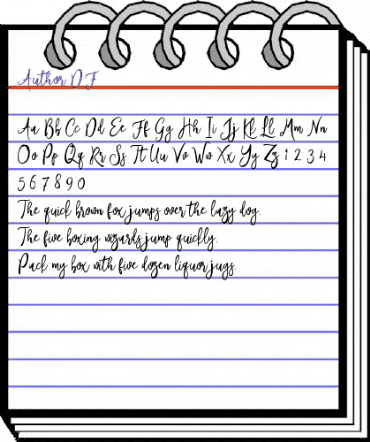 Author DF
Aa Bb Cc Dd Ee Ff Gg Hh Ii Jj Kk Ll Mm Nn
Oo Pp Qq Rr Ss Tt Uu Vv Ww Xx Yy Zz 1 2 3 4
5 6 7 8 9 0
The quick brown fox jumps over the lazy dog.
The five boxing wizards jump quickly.
Pack my box with five dozen liquor jugs.